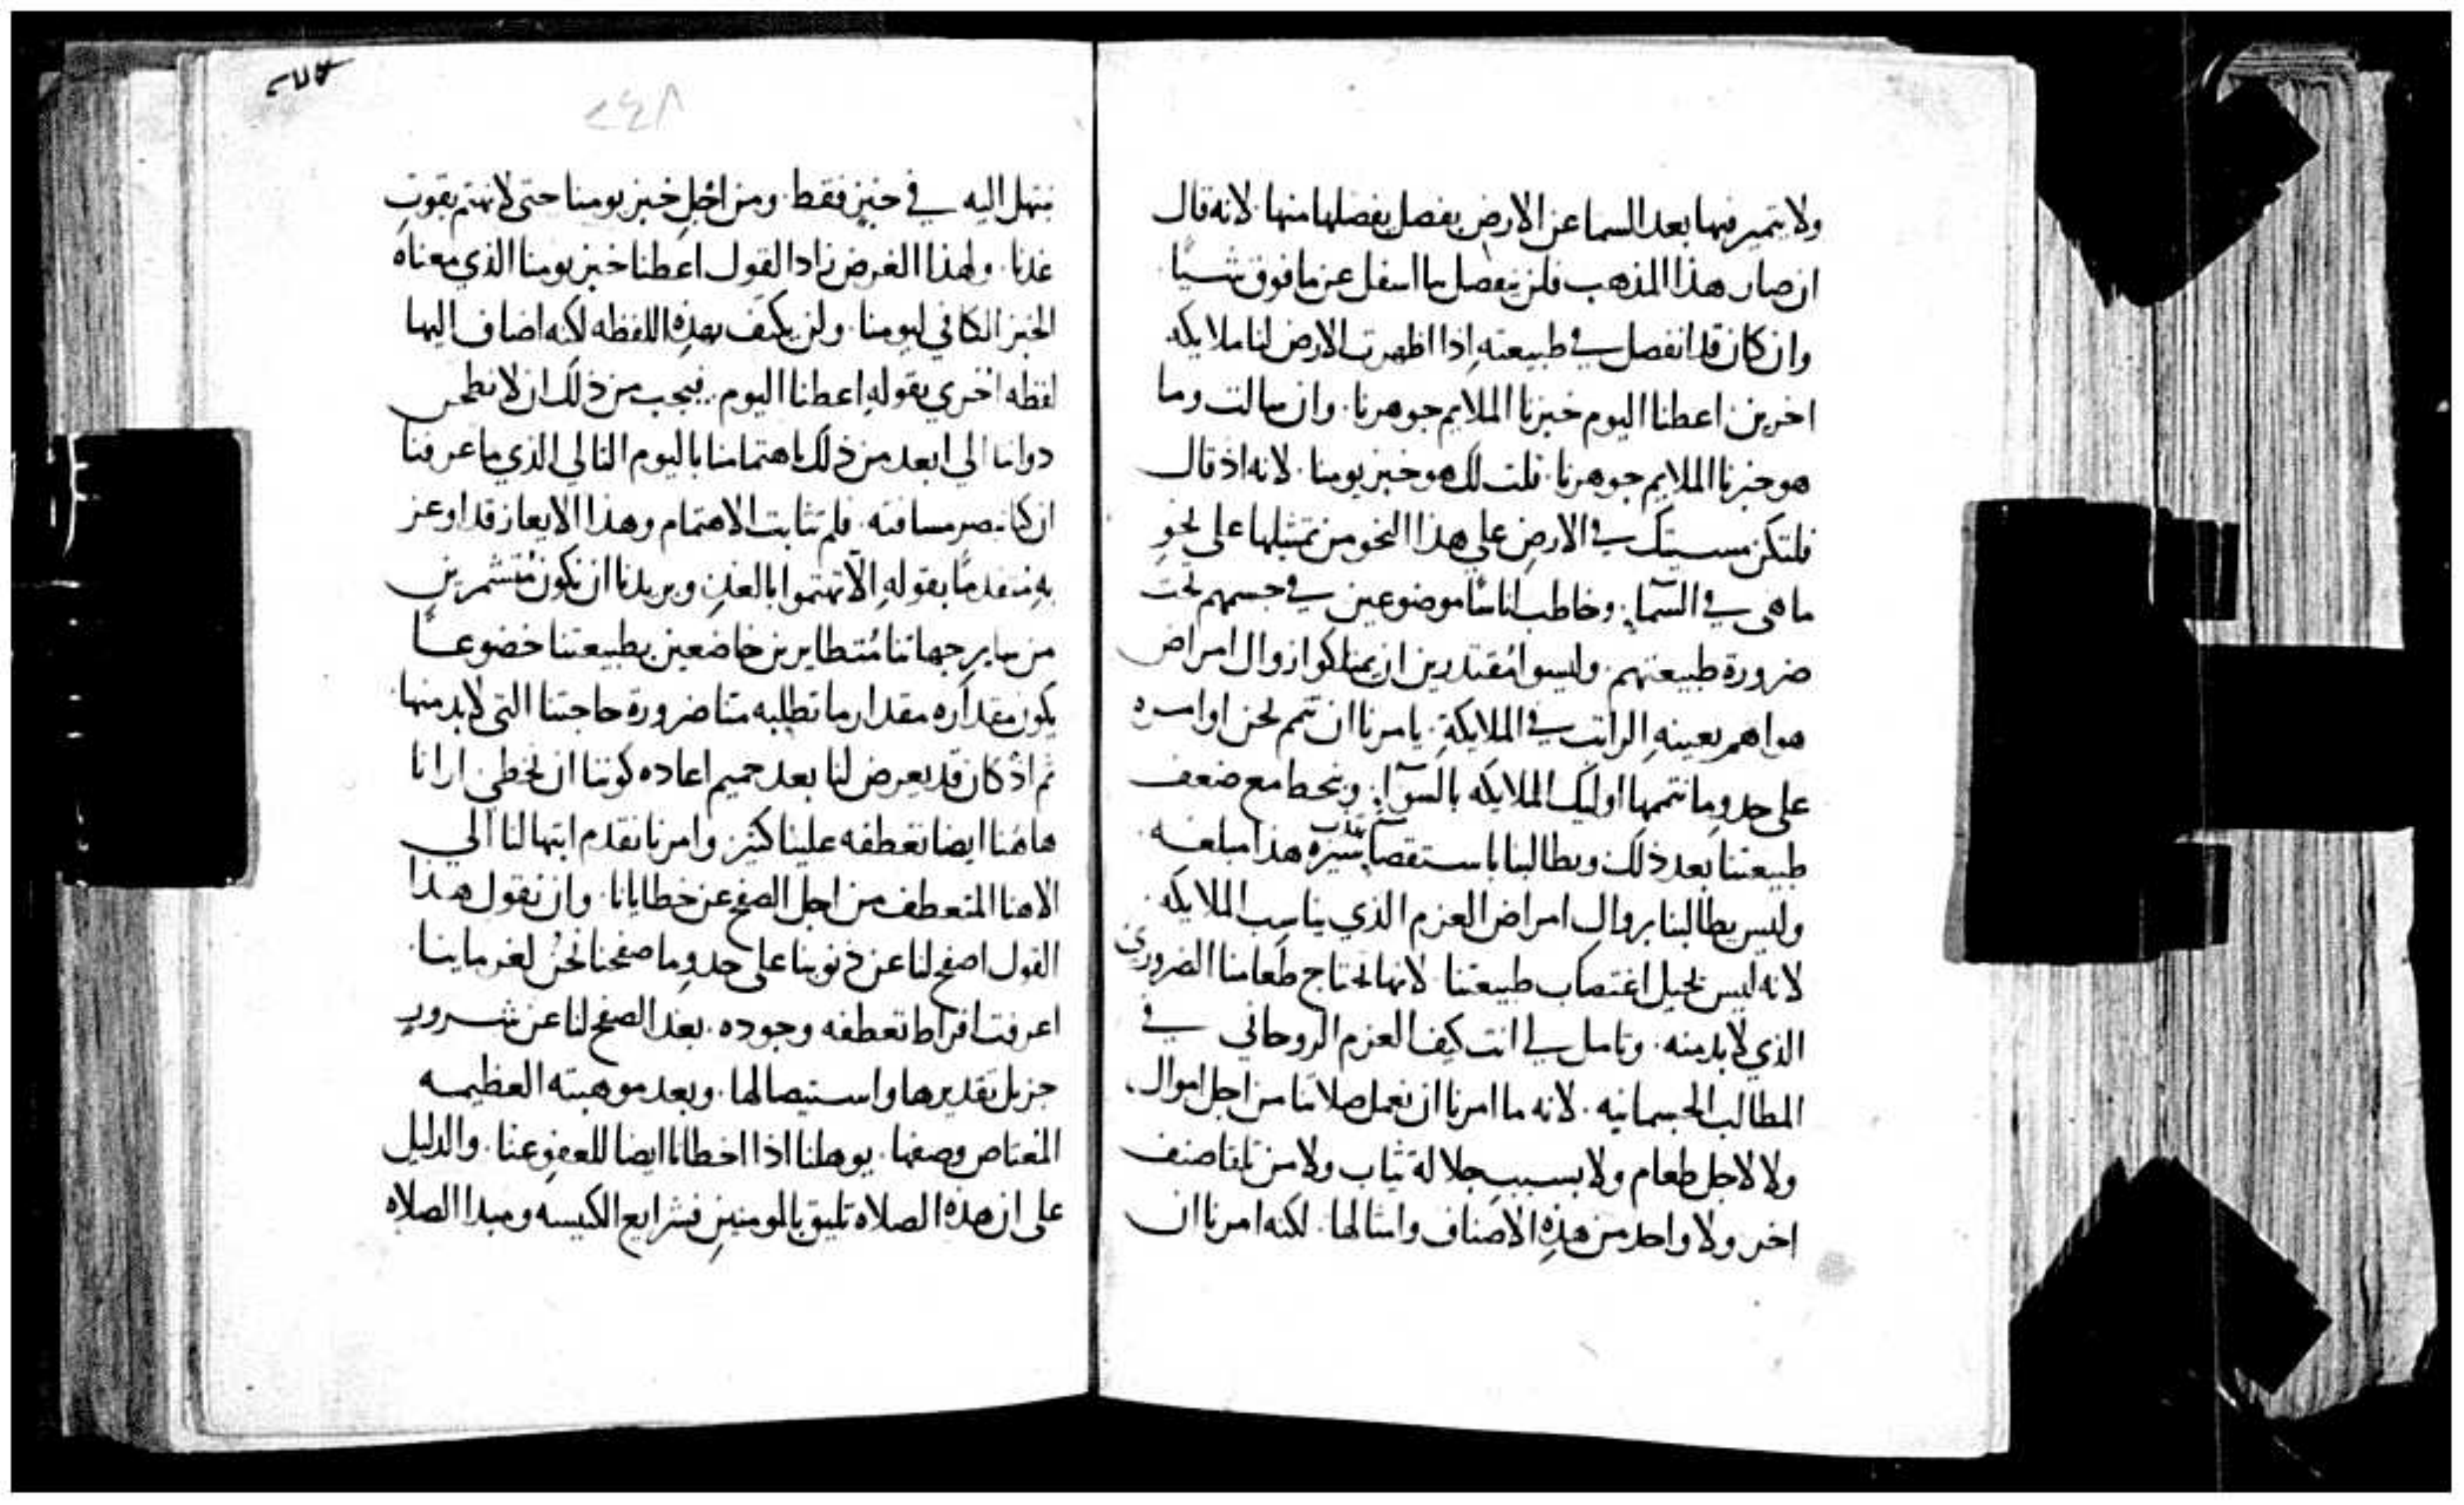 ولا يتميز فيها بعد السما عن الارض بفصل يفصلها منها. لانه قال
ان صار هذا المذهب فلن ينفصل ما اسفل عن ما فوق شيًا
وان كان قد انفصل في طبيعته اذا اظهرت الارض لنا ملايكه
اخرين. اعطنا اليوم خبزنا الملايم جوهرنا. وان سالت وما
هو خبزنا الملايم جوهرنا. قلت لك هو خبز يومنا. لانه اذ قال
فلتكن مسيتك في الارض على هذا النحو من تمثيلها على نحوِ
ما هى في السمآءِ. وخاطب اناسًا موضوعين في جسمهم تحت
ضرورة طبيعتهم. وليسوا مُقتدرين ان يمتلكوا زوال امراض
هواهم بعينهِ الراتب في الملايكةِ. يامرنا ان نتمم نحن اوامره
على حدوِ ما تتممها اوليك الملايكه بالسوآءِ. وينحط مع ضعف
طبيعتنا بعد ذلك ويطالبنا باستقصآءِ سيرة هذا مبلغه.
وليس يطالبنا بزوال امراض العزم الذي يناسب الملايكه.
لانه ليس يحيل اغتصاب طبيعتنا. لانها تحتاج طعامنا الضروري
الذي لا بد منه. وتامل لي انت كيف العزم الروحاني في
المطالب الجسمانيه. لانه ما امرنا ان نعمل صلاتنا من اجل اموال.
ولا لاجل طعام ولا بسبب جلالة ثياب ولا من تلقا صنف
اخر ولا واحد من هذهِ الاصناف وامثالها. لكنه امرنا ان
٢٤٨
نبتهل اليه في خبزٍ فقط. ومن اجْلِ خبز يومنا حتى لا نهتم بقوتِ
غدنا. ولهذا الغرض زاد القول اعطنا خبز يومنا الذي معناه
الخبز الكافي ليومنا. ولن يكتفَ بهذهِ اللفظه لكنه اضاف اليها
لفظه اخرى بقولهِ اعطنا اليوم. فيجب من ذلك ان لا نطمس
ذواتنا الى ابعد من ذلك باهتمامنا باليوم التالي الذي ما عرفنا
ان كنا نبصر مسافته. فلم تثابت الاهتمام وهذا الايعاز قد اوعز
بهِ متقدمًا بقولهِ الّا تهتموا بالغدِ. ويريدنا ان نكون مُتشمرينِ
من ساير جهاتنا مُتطايرين خاضعين بطبيعتنا خضوعًا
يكون مقداره مقدار ما تطلبه منا ضرورة حاجتنا التي لا بد منها.
ثم اذ كان قد يعرض لنا بعد حميم اعاده كوننا ان نخطى ارانا
هاهُنا ايضا تعطفه علينا كثيرً. وامرنا نقدم ابتهالنا الى
الاهنا المتعطف من اجل الصفح عن خطايانا. وان نقول هذا
القول اصفح لنا عن ذنوبنا على حدوِ ما صفحنا نحنُ لغرماينا.
اعرفت افراط تعطفه وجوده. بعد الصفح لنا عن شرورٍ
جزيل تقديرها واستيصالها. وبعد موهبته العظيمه
المُعتاص وصفها. يوهلنا اذا اخطانا ايضا للعفوِ عنا. والدليل
على ان هذهِ الصلاه تليق بالمومنينِ فشرايع الكنيسه ومبدا الصلاه